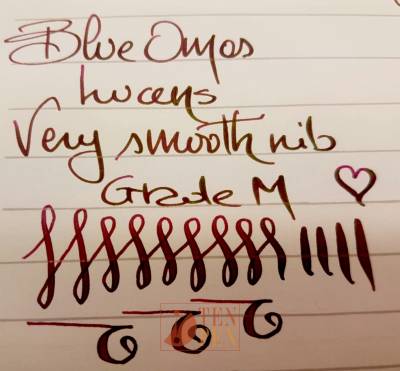 Blue Omas
Lucens
Very smooth nib
Grade M
TEN
PEN